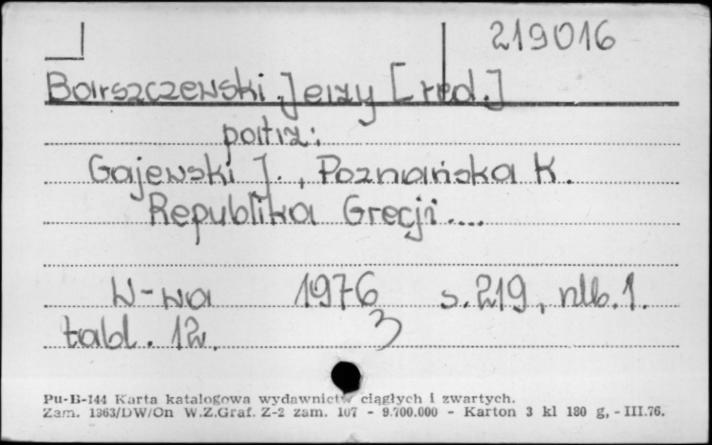 219016
Barszczewski Jerzy [red.]
patrz:
Gajewski J., Poznańska K.
Republika Grecji....
W-wa 1976 s. 219, nlb. 1.
tabl. 12. 3
Pu-B-144 Karta katalogowa wydawnictw ciągłych i zwartych.
Zam. 1363/DW/On W.Z.Graf. Z-2 zam. 107 - 9.700.000 - Karton 3 kl 180 g, - III.76.